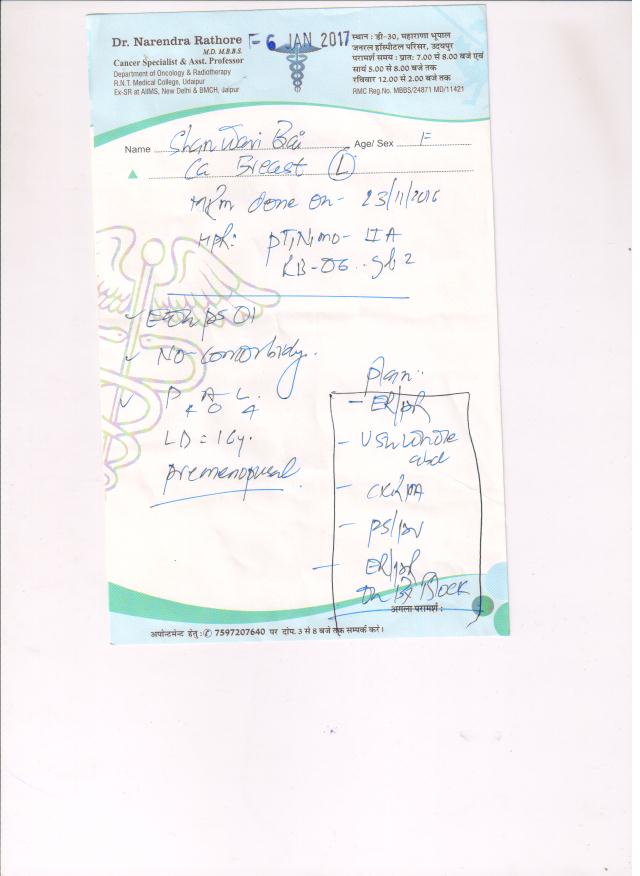 Dr. Narendra Rathore
M.D. M.B.B.S.
Cancer Specialist & Asst. Professor
Department of Oncology & Radiotherapy
R.N.T. Medical College, Udaipur
Ex-SR at AIIMS, New Delhi & BMCH, Jaipur
6 JAN 2017
स्थान : डी-30, महाराणा भूपाल
जनरल हॉस्पीटल परिसर, उदयपुर
परामर्श समय : प्रातः 7.00 से 8.00 बजे एवं
सायं 5.00 से 8.00 बजे तक
रविवार 12.00 से 2.00 बजे तक
RMC Reg.No. MBBS/24871 MD/11421
Name Bai Age/ Sex F
Ca Breast L
MRM done on - 23/11/2016
HPR: IIA
No
P A L
4 0 4
premenopausal
Plan:
- ER/PR
- USG whole
abd
- CXR PA
- ER/PR
on Block
अगला परामर्श :
अपोन्टमेन्ट हेतु : 7597207640 पर दोप. 3 से 8 बजे तक सम्पर्क करें।